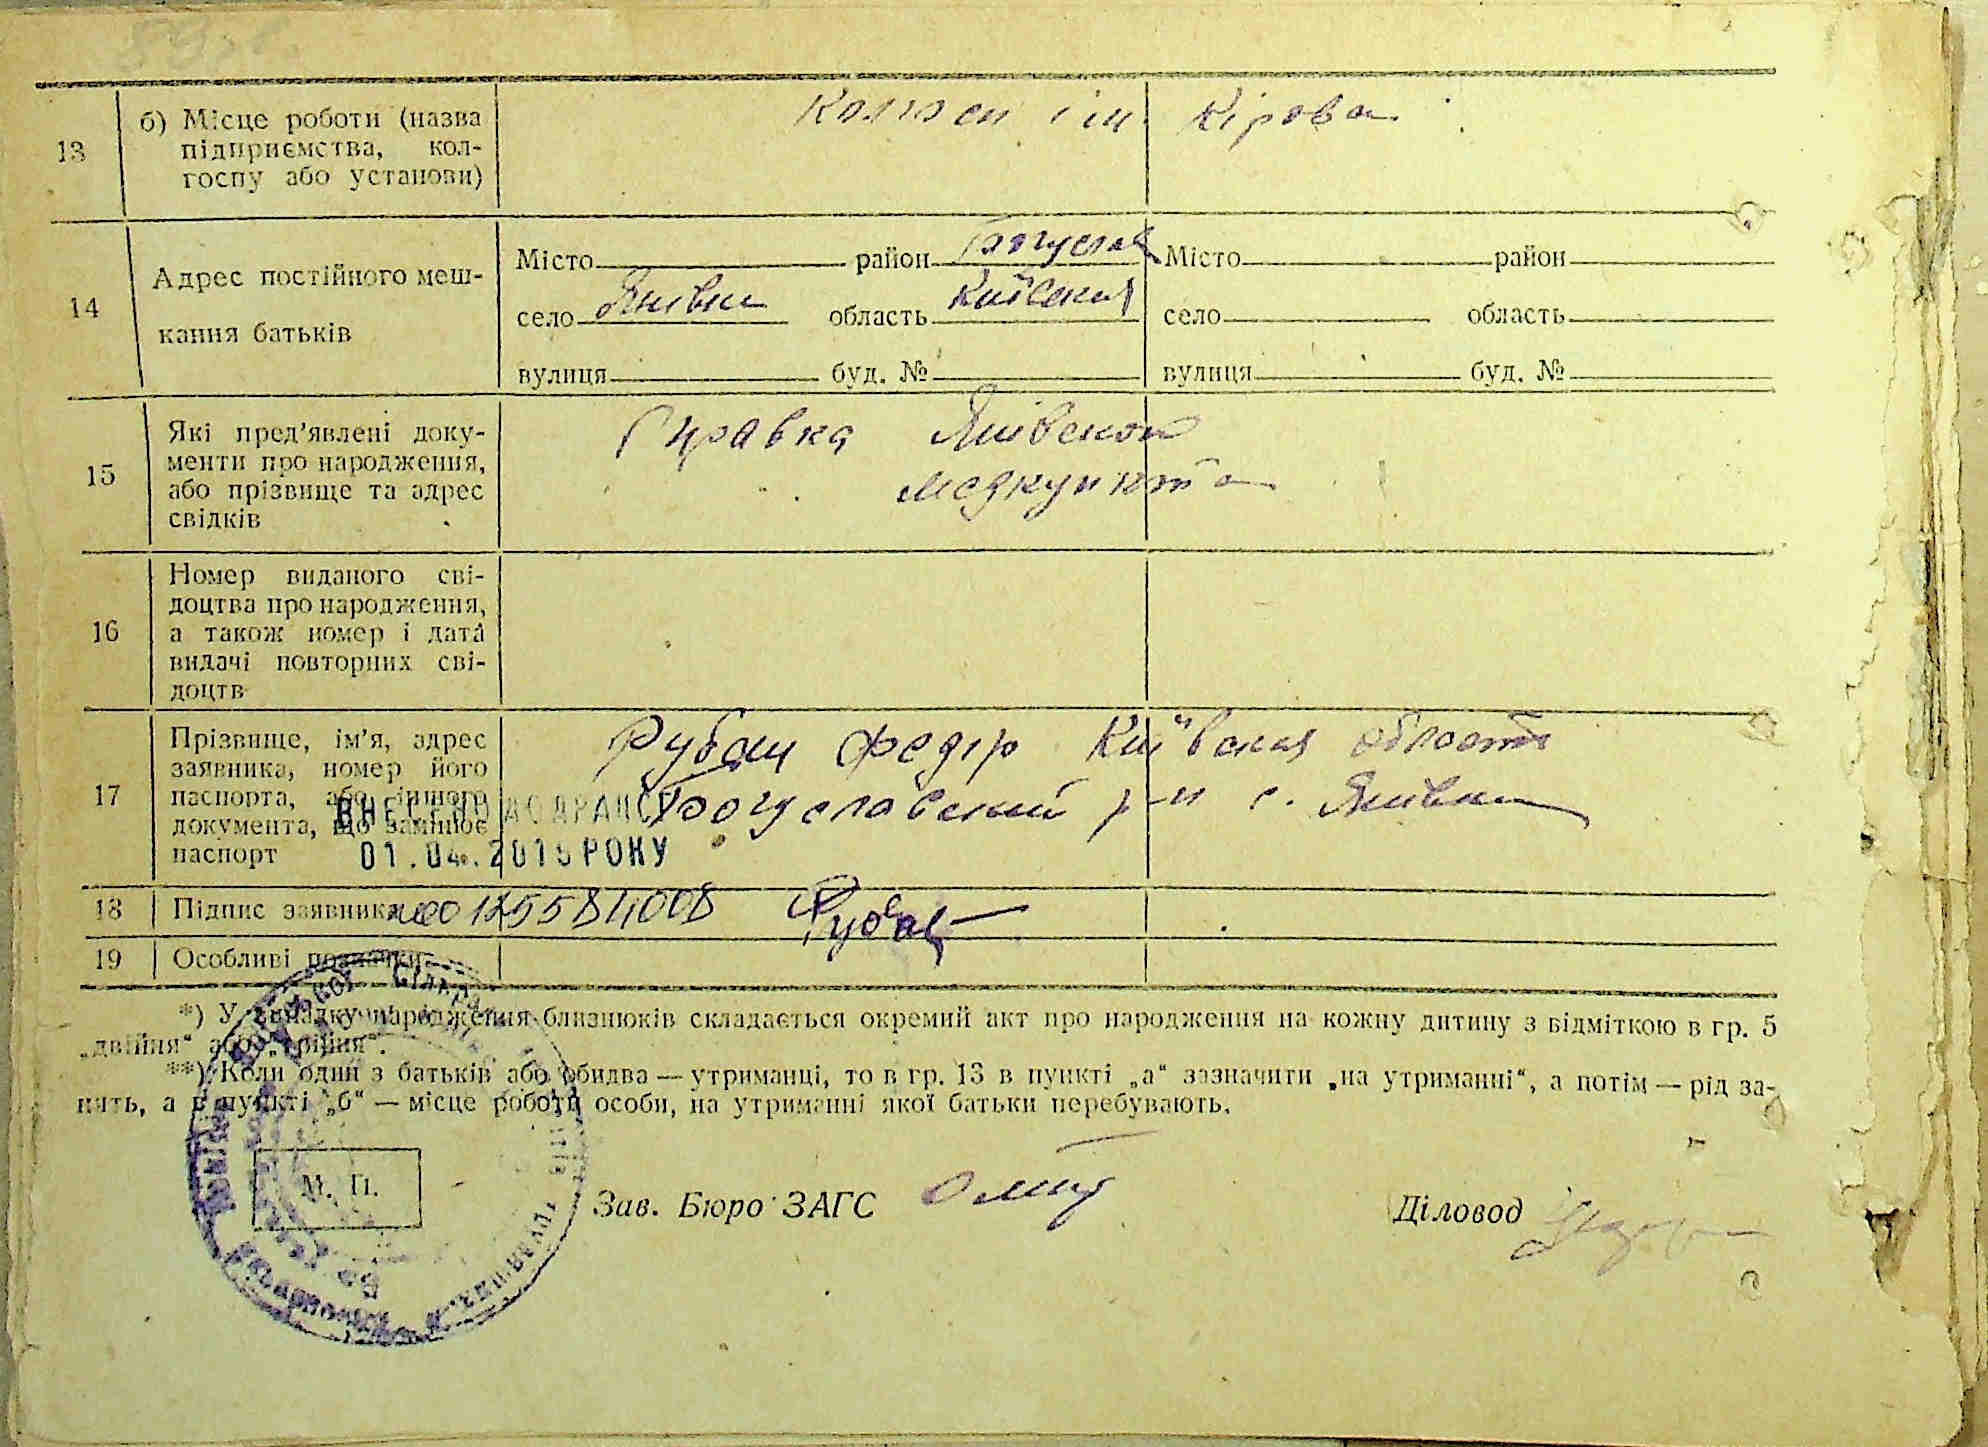 13
б) Місце роботи (назва
підприємства, кол-
госпу або установи)
Колгосп ім. Кірова
14
Адрес постійного меш-
кання батьків
Місто район Богуслав
село Яцівки область Київская
вулиця буд. №
Місто район
село область
вулиця буд. №
15
Які пред’явлені доку-
менти про народження,
або прізвище та адрес
свідків
Справка
медпункта
16
Номер виданого сві-
доцтва про народження,
а також номер і дата
видачі повторних сві-
доцтв
17
Прізвище, ім’я, адрес
заявника, номер його
паспорта, або іншого
документа, що замінює
паспорт
Рубан Федір Київская область
Богуславский р-н с.
ВНЕСЕНО ДО ДРАЦСГ
01.04.2015 РОКУ
18
Підпис заявника
00125584008 Рубан
19
Особливі позначки
*) У випадку народження близнюків складається окремий акт про народження на кожну дитину з відміткою в гр. 5
„двійня“ або „трійня“.
**) Коли один з батьків або обидва — утриманці, то в гр. 13 в пункті „а“ зазначити „на утриманні“, а потім — рід за-
нять, а в пункті „б“ — місце роботи особи, на утриманні якої батьки перебувають.
М. П.
Зав. Бюро ЗАГС
Діловод